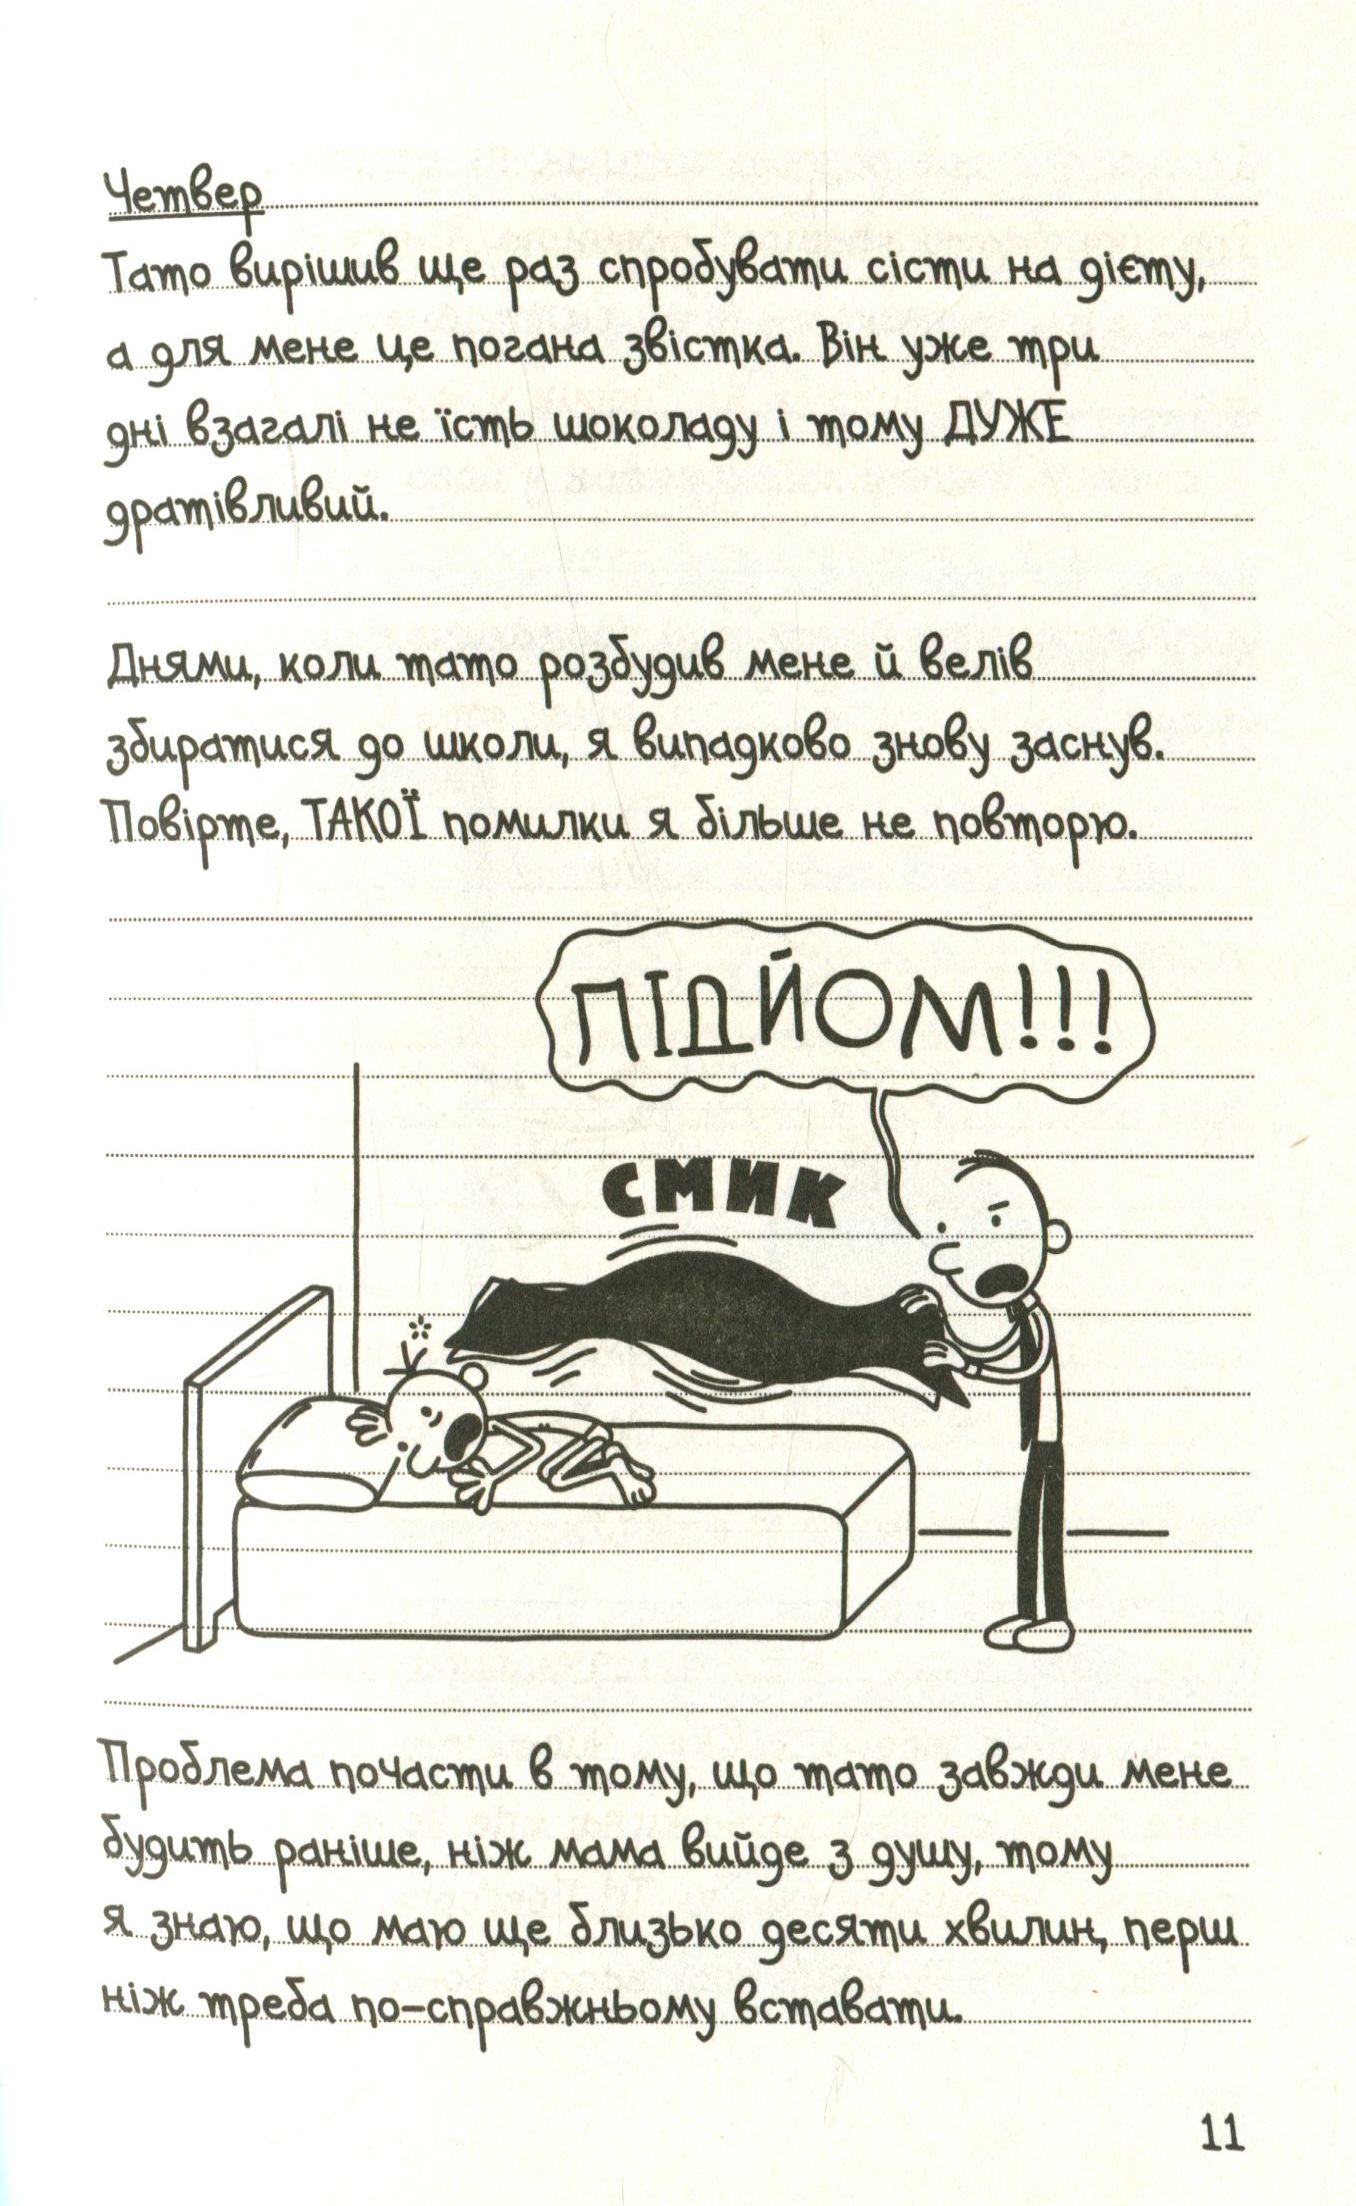 Четвер
Тато вирішив ще раз спробувати сісти на дієту,
а для мене це погана звістка. Він уже три
дні взагалі не їсть шоколаду і тому ДУЖЕ
дратівливий.
Днями, коли тато розбудив мене й велів
збиратися до школи, я випадково знову заснув.
Повірте, ТАКОЇ помилки я більше не повторю.
ПІДЙОМ!!!
СМИК
Проблема почасти в тому, що тато завжди мене
будить раніше, ніж мама вийде з душу, тому
я знаю, що маю ще близько десяти хвилин, перш
ніж треба по-справжньому вставати.
11